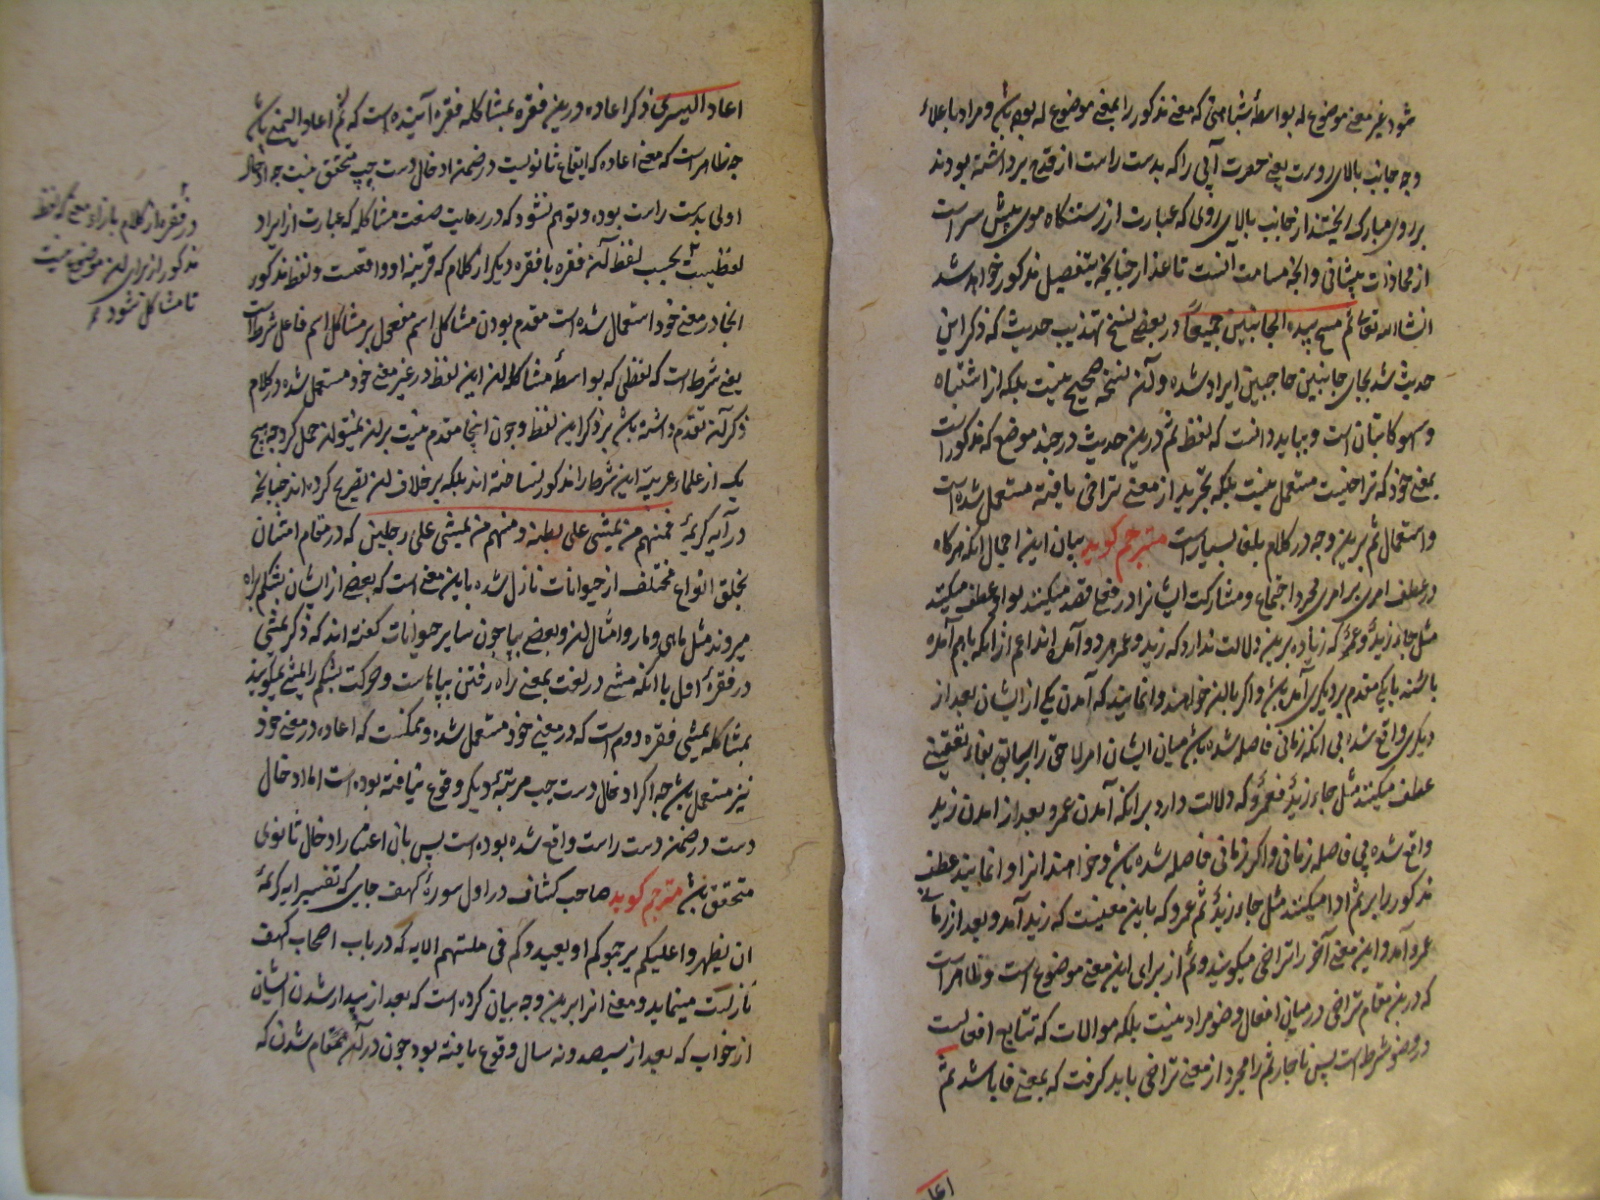 شود غیر معنی موضوع له بواسطهٔ شباهتی که معنی مذکور را بمعنی موضوع له بوده باشد و مراد باعلاء
وجه جانب بالای روست یعنی حضرت آبی را که بدست راست از قدح برداشته بودند
بر روی مبارک ریختند از جانب بالای روی که عبارت از رستنگاه موی پیش سر است
از محاذات پیشانی و آنچه مسامت آنست تا عذار چنانچه بتفصیل مذکور خواهد شد
انشاء الله تعالی ثم مسح بیده الجانبین جمیعا در بعضی نسخ تهذیب حدیث که ذکر این
حدیث شد بجای جانبین حاجبین ایراد شده و آن نسخه صحیح نیست بلکه از اشتباه
و سهو کاتبان است و بباید دانست که لفظ ثم درین حدیث در چند موضع که مذکور است
بمعنی خود که تراخیست مستعمل نیست بلکه تجرید از معنی تراخی یافته مستعمل شده است
و استعمال ثم برین وجه در کلام بلغا بسیار است مترجم گوید بیان این اجمال آنکه هرگاه
در عطف امری بر امری مجرد اجتماع و مشارکت ایشانرا در فعل قصد میکنند بواو عطف میکنند
مثل جاء زید و عمرو که زیاده برین دلالت ندارد که زید و عمرو هر دو آمده‌اند اعم از آنکه باهم آمده
باشند یا یکی مقدم بر دیگری آمده باشد و اگر با این خواهند وانمایند که آمدن یکی از ایشان بعد از
دیگری واقع شده بی آنکه زمانی فاصله شده باشد میان ایشان امر لاحق را بسابق بفاء تعقیبی
عطف میکنند مثل جاء زید فعمرو که دلالت دارد بر آنکه آمدن عمرو بعد از آمدن زید
واقع شده بی فاصله زمانی و اگر زمانی فاصله شده باشد و خواهند آنرا وانمایند عطف
مذکور را بر ثم ادا میکنند مثل جاء زید ثم عمرو که باین معنیست که زید آمد و بعد از زمانی
عمرو آمد و این معنی آخر را تراخی میگویند و ثم از برای این معنی موضوع است و ظاهر است
که درین مقام تراخی در میان افعال وضو مراد نیست بلکه موالات که تتابع افعالست
در وضو شرط است پس ناچار ثم را مجرد از معنی تراخی باید گرفت که بمعنی فا باشد ثم
اعا
اعاد الیسری ذکر اعاده درین فقره بمشاکله فقره آینده است که ثم اعاد الیمنی باشد
چه ظاهر است که معنی اعاده که ایقاع ثانویست در ضمن ادخال دست چپ متحقق نیست چه ادخال
اولی بدست راست بوده و توهم نشود که در رعایت صنعت مشاکله که عبارت از ایراد
لفظیست بحسب لفظ آن فقره با فقره دیگر از کلام که قرینه او واقعست و لفظ مذکور
آنجا در معنی خود استعمال شده است مقدم بودن مشاکل اسم مفعول بر مشاکل اسم فاعل شرط است
یعنی شرط است که لفظی که بواسطهٔ مشاکله آن این لفظ در غیر معنی خود مستعمل شده در کلام
ذکر آن تقدم داشته باشد بر ذکر این لفظ و چون اینجا مقدم نیست بر آن نمیتوان حمل کرد چه هیچ
یک از علماء عربیة این شرط را مذکور نساخته‌اند بلکه بر خلاف آن تصریح کرده‌اند چنانچه
در آیه کریمهٔ فمنهم من یمشی علی بطنه و منهم من یمشی علی رجلین که در مقام امتنان
بخلق انواع مختلف از حیوانات نازل شده باین معنی است که بعضی از ایشان بشکم راه
میروند مثل ماهی و مار و امثال آن و بعضی بپا چون سایر حیوانات گفته‌اند که ذکر یمشی
در فقرهٔ اول با آنکه مشی در لغت بمعنی راه رفتن بپاهاست و حرکت بشکم را مشی نمیگویند
بمشاکلهٔ یمشی فقره دوم است که در معنی خود مستعمل شده و ممکنست که اعاده در معنی خود
نیز مستعمل باشد چه اگر ادخال دست چپ مرتبهٔ دیگر وقوع نیافته بوده است اما ادخال
دست در ضمن دست راست واقع شده بوده است پس بآن اعتبار ادخال ثانوی
متحقق باشد مترجم گوید صاحب کشاف در اول سورهٔ کهف جای که تفسیر آیه کریمهٔ
ان یظهروا علیکم یرجموکم او یعیدوکم فی ملتهم الایه که در باب اصحاب کهف
نازلست مینماید و معنی آنرا برین وجه بیان کرده است که بعد از بیدار شدن ایشان
از خواب که بعد از سیصد و نه سال وقوع یافته بود چون در آن مقام شدن که
در فقرهٔ از کلام بازاء معنی که لفظ
مذکور از برای آن موضوع نیست
تا مشاکل شود